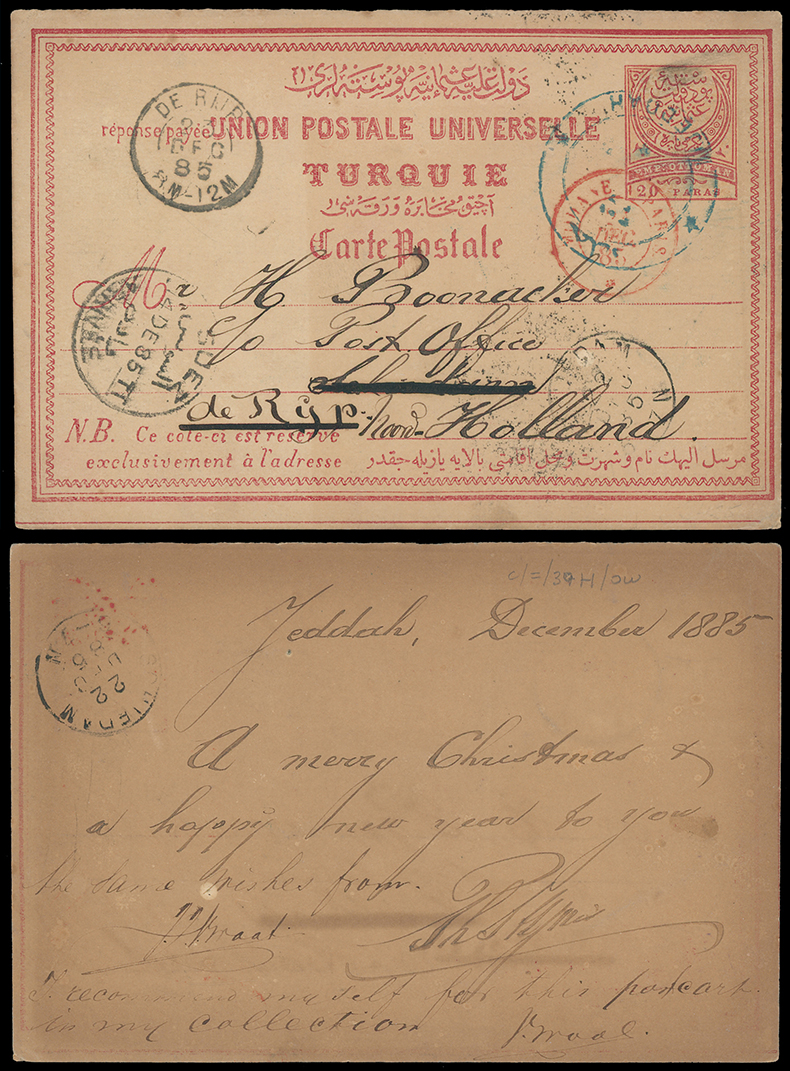 دولت علیه عثمانیه پوسته لری
réponse payée
UNION POSTALE UNIVERSELLE
TURQUIE
آچیق مخابره ورقه سی
Carte Postale
20 PARAS
DE RIJP
DEC
85
-12M
DEC
85
SUEZ
DE 85
M r H Boonacker
c/o Post Office
de Ryp. Noord-Holland.
N.B. Ce côté-ci est réservé
exclusivement à l'adresse
مرسل الیهك نام و شهرت و محل اقامتی بالایه یازیله جقدر
c/=/39H/ow
Jeddah, December 1885
A merry Christmas &
a happy new year to you
the same wishes from.
I recommend myself for this postcart
in my collection